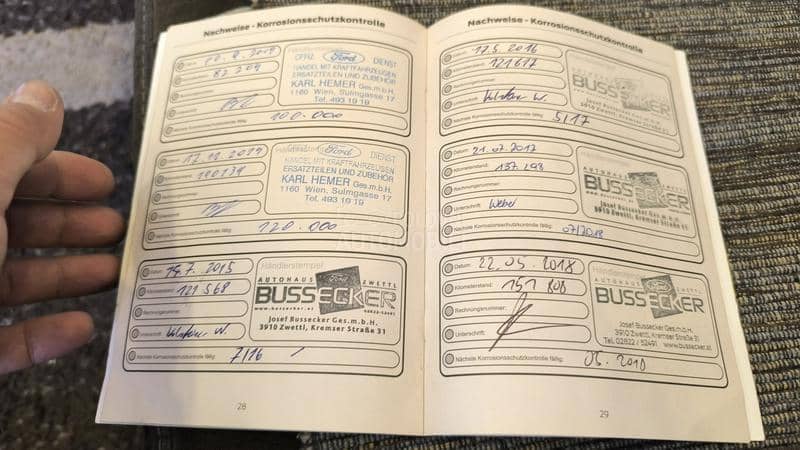 Nachweise - Korrosionsschutzkontrolle
Datum:
87 209
DIENST
Ford
HANDEL MIT KRAFTFAHRZEUGEN
ERSATZTEILEN UND ZUBEHÖR
KARL HEMER Ges.m.b.H.
1160 Wien, Sulmgasse 17
Tel. 493 10 19
Nächste Korrosionsschutzkontrolle fällig:
100.000
Datum:
12.11.2014
110139
Ford
DIENST
HANDEL MIT KRAFTFAHRZEUGEN
ERSATZTEILEN UND ZUBEHÖR
KARL HEMER Ges.m.b.H.
1160 Wien, Sulmgasse 17
Tel. 493 10 19
120.000
Datum:
7.2015
Händlerstempel
Kilometerstand:
121 568
AUTOHAUS ZWETTL
BUSSECKER
www.bussecker.at
Rechnungsnummer:
Josef Bussecker Ges.m.b.H.
3910 Zwettl, Kremser Straße 31
Unterschrift:
Nächste Korrosionsschutzkontrolle fällig:
7/16
28
Nachweise - Korrosionsschutzkontrolle
Datum:
17.5.2016
Kilometerstand:
BUSSECKER
Josef Bussecker Ges.m.b.H.
Unterschrift:
Nächste Korrosionsschutzkontrolle fällig:
5/17
Datum:
21.07.2017
Kilometerstand:
137.198
AUTOHAUS ZWETTL
BUSSECKER
Rechnungsnummer:
Josef Bussecker Ges.m.b.H.
3910 Zwettl, Kremser Straße 31
Unterschrift:
Weber
Nächste Korrosionsschutzkontrolle fällig:
07/2018
Datum:
22.05.2018
Händlerstempel
Kilometerstand:
151 808
AUTOHAUS ZWETTL
BUSSECKER
Rechnungsnummer:
Josef Bussecker Ges.m.b.H.
3910 Zwettl, Kremser Straße 31
Tel. 02822 / 52491 www.bussecker.at
Unterschrift:
Nächste Korrosionsschutzkontrolle fällig:
29